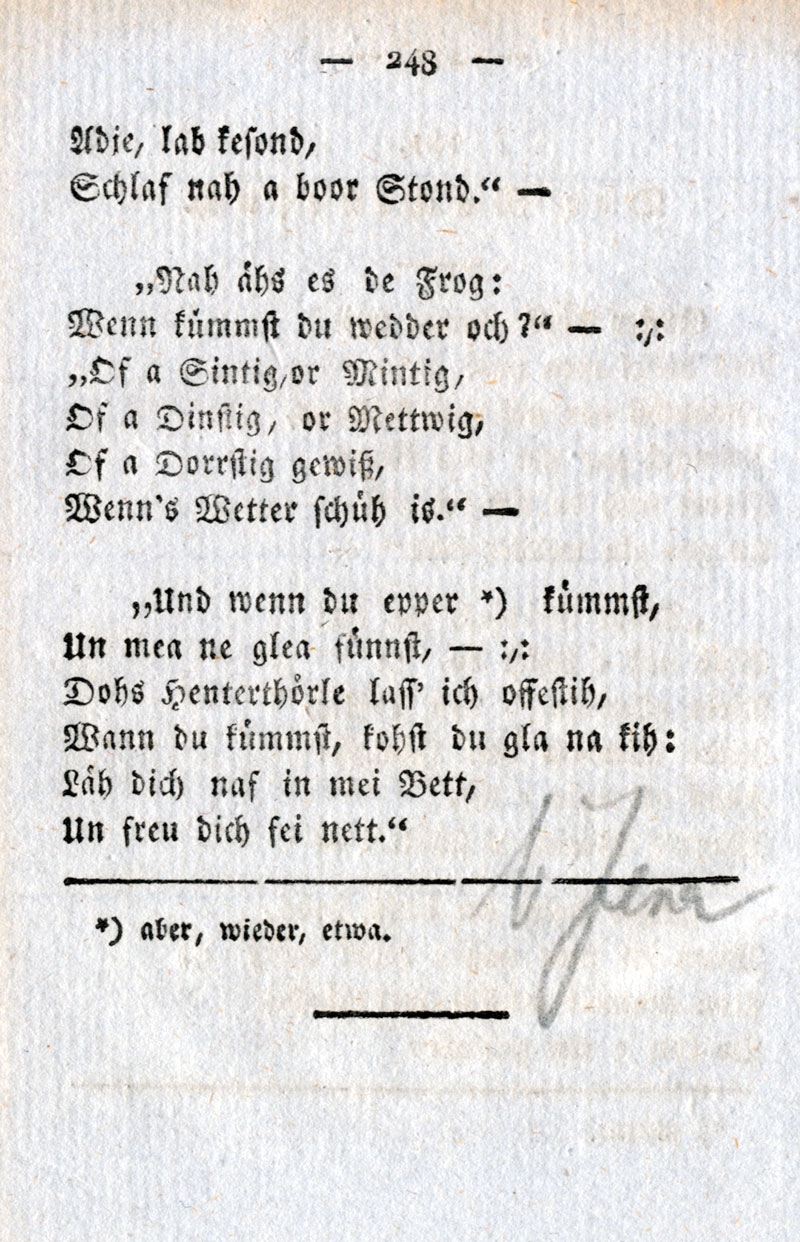 — 248 —
Adje, lab keſond,
Schlaf nah a boor Stond.“ —
„Nah ähs es de Frog:
Wenn kümmſt du wedder och?“ — :,:
„Of a Sintig, or Mintig,
Of a Dinſtig, or Mettwig,
Of a Dorrſtig gewiß,
Wenn's Wetter ſchüh is.“ —
„Und wenn du epper *) kümmſt,
Un mea ne glea fünnſt, — :,:
Dohs Henterthörle laſſ' ich offeſtih,
Wann du kümmſt, kohſt du gla na kih:
Läh dich naf in mei Bett,
Un freu dich fei nett.“
Jena
*) aber, wieder, etwa.